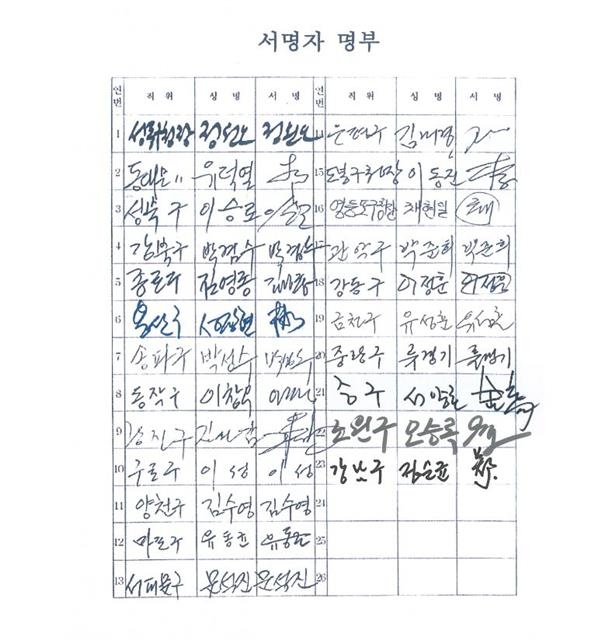 서명자 명부
연번 직위 성명 서명 직위 성명 서명
1 성동구청장 정원오 정원오 14 은평구 김미경
2 동대문〃 유덕열 15 도봉구청장 이동진
3 성북구 이승로 16 영등포구청장 채현일
4 강북구 박겸수 박겸수 관악구 박준희 박준희
5 종로구 김영종 김영종 18 강동구 이정훈 이정훈
6 용산구 성장현 19 금천구 유성훈 유성훈
7 송파구 박성수 박성수 20 중랑구 류경기 류경기
8 동작구 이창우 21 중구 서양호
9 광진구 김선갑 22 노원구 오승록
10 구로구 이성 이성 23 강남구 정순균
11 양천구 김수영 김수영 24
12 마포구 유동균 유동균 25
13 서대문구 문석진 문석진 26